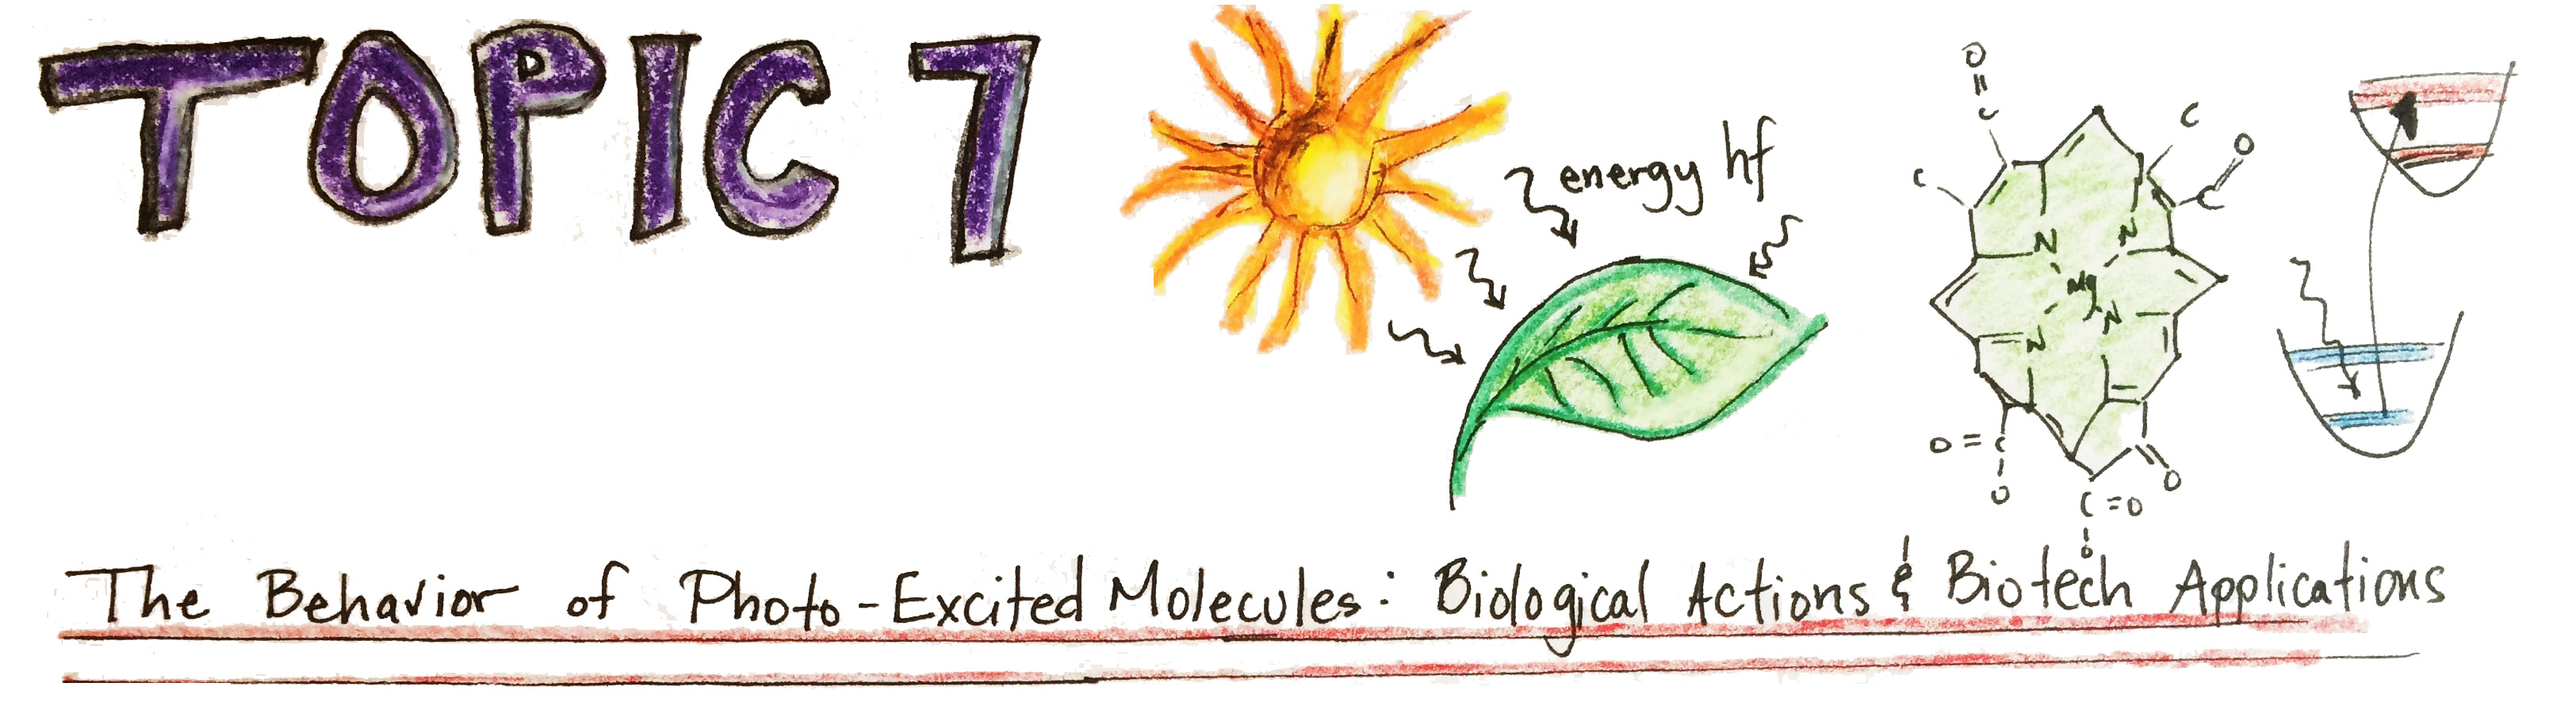 TOPIC 7
energy hf
O
C
C
C
O
C
N
N
Mg
N
N
O=C
O
O
C=O
O
The Behavior of Photo-Excited Molecules: Biological Actions & Biotech Applications